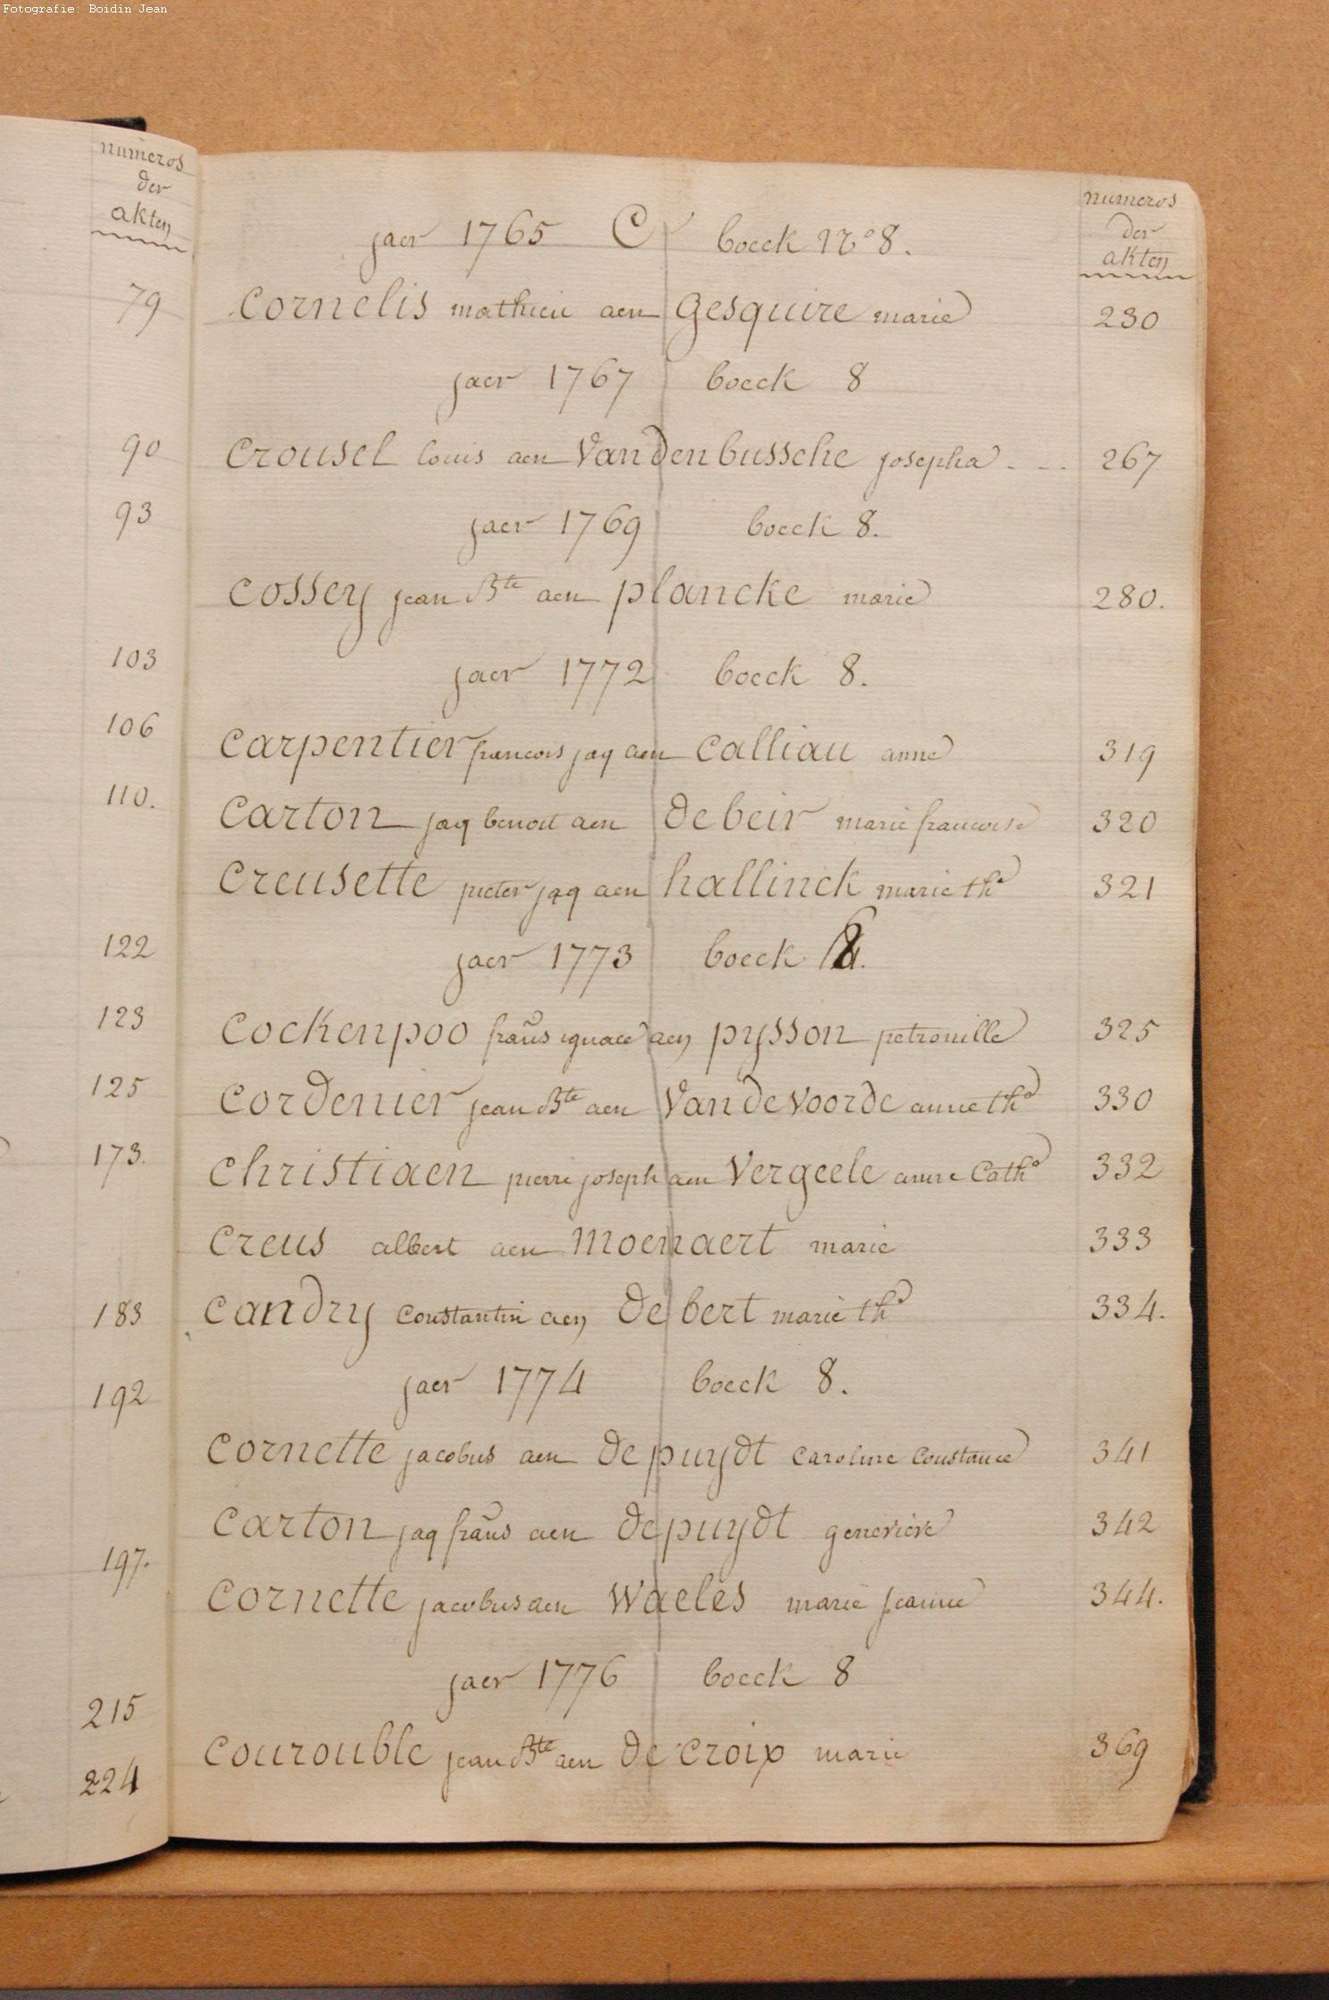 Fotografie: Boidin Jean
numeros
der
akten
79
90
93
103
106
110.
122
123
125
173.
183
192
197.
215
224
jaer 1765 C boeck No 8.
numeros
der
akten
Cornelis mathieu aen Gesquire marie 230
jaer 1767 boeck 8
Crousel louis aen Vandenbussche josepha - - - 267
jaer 1769 boeck 8.
Cossey jean Bte aen plancke marie 280.
jaer 1772 boeck 8.
Carpentier francois jaq aen Calliau anne 319
Carton jaq benoit aen de beir marie francoise 320
Creusette pieter jaq aen hallinck marie the 321
jaer 1773 boeck 8.
Cockenpoo frañs ignace aen pysson petronille 325
Cordenier jean Bte aen Van de Voorde anne the 330
Christiaen pierre joseph aen Vergeele anne Cathe 332
Creus albert aen Moenaert marie 333
Candry Constantin aen De bert marie the 334.
jaer 1774 boeck 8.
Cornette jacobus aen de puydt Caroline Constance 341
Carton jaq frañs aen de puydt genevieve 342
Cornette jacobus aen Waeles marie jeanne 344.
jaer 1776 boeck 8
Courouble jean Bte aen de Croix marie 369